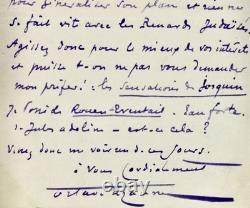 pour généraliser son plan et rien ne
se fait vite avec les Renards Judaïsés
Agissez donc pour le mieux de vos intérêts
et puisse t-on ne pas vous demander
mon préfer. les Sensations de Josquin
7. Voici de Rouen-Eventail. Eau forte.
Jules adeline - est-ce cela ?
Venez donc me voir un de ces Jours.
à Vous Cordialement
octave uzanne